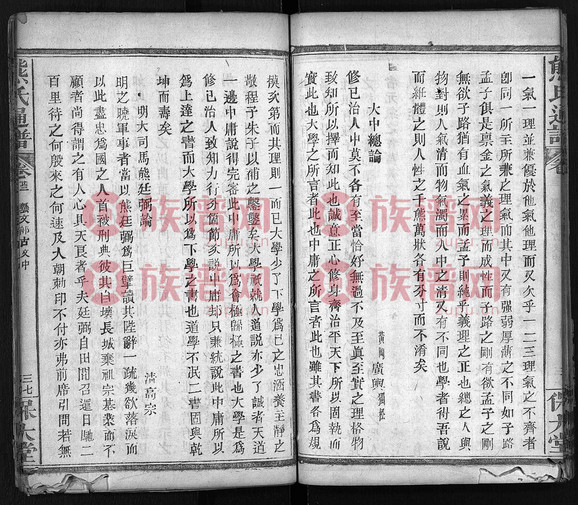 一氣一理並兼優於他氣他理而又次乎一二三理氣之不齊者
卽同一所至所兼之理氣而其中又有强弱厚薄之不同如子路
孟子俱是禀金之氣義之理而成性而子路之剛有欲孟子之剛
無欲子路猶有血氣之累而孟子則純乎義理之正也總之人與
物對則人氣清而物氣濁而人中之清又有不同也學者得吾說
而細體之則人性之千態萬狀各有不可以而不淆矣
大中總論
黃岡 廣輿
修已治人中莫不各有至當恰好無過不及至真至實之理格物
致知所以擇而知此也誠意正心修身齊治平天下所以固執而
實此也大學之所言者此也中庸之所言者此也雖其書各爲規
模亥弟而其理則一而已大學少了下學爲已之忠涵養主靜之
敬程子朱子以补之鑿鑿矣大學就人道説亦少了誠者天道
一邊中庸説得完密此中庸所以爲會極歸極之書也大學是以
修已治人致知力行分個節亥説中庸却只兼統説此中庸所以
爲上達之書而大學所以爲下學之書也道學不泯二書固與乾
坤而壽矣
明大司馬熊廷弼論
清高宗
明之晚軍事者當以熊廷弼爲巨擘讀其陛辭一疏幾欲落淚而
以此盡忠爲國之人首被刑典彼其自壞長城棄祖宗基業而不
顧者尚得謂之有人心具天良者乎夫廷弼自田間召還日馳二
百里待之何殷來之何速及人朝勅印不付亦弗前席引問若無
熊氏通譜
卷
藝文部古文中
三七
保大堂
熊氏通譜
保大堂
族谱网
族谱网
族谱网
族谱网
族谱网
族谱网